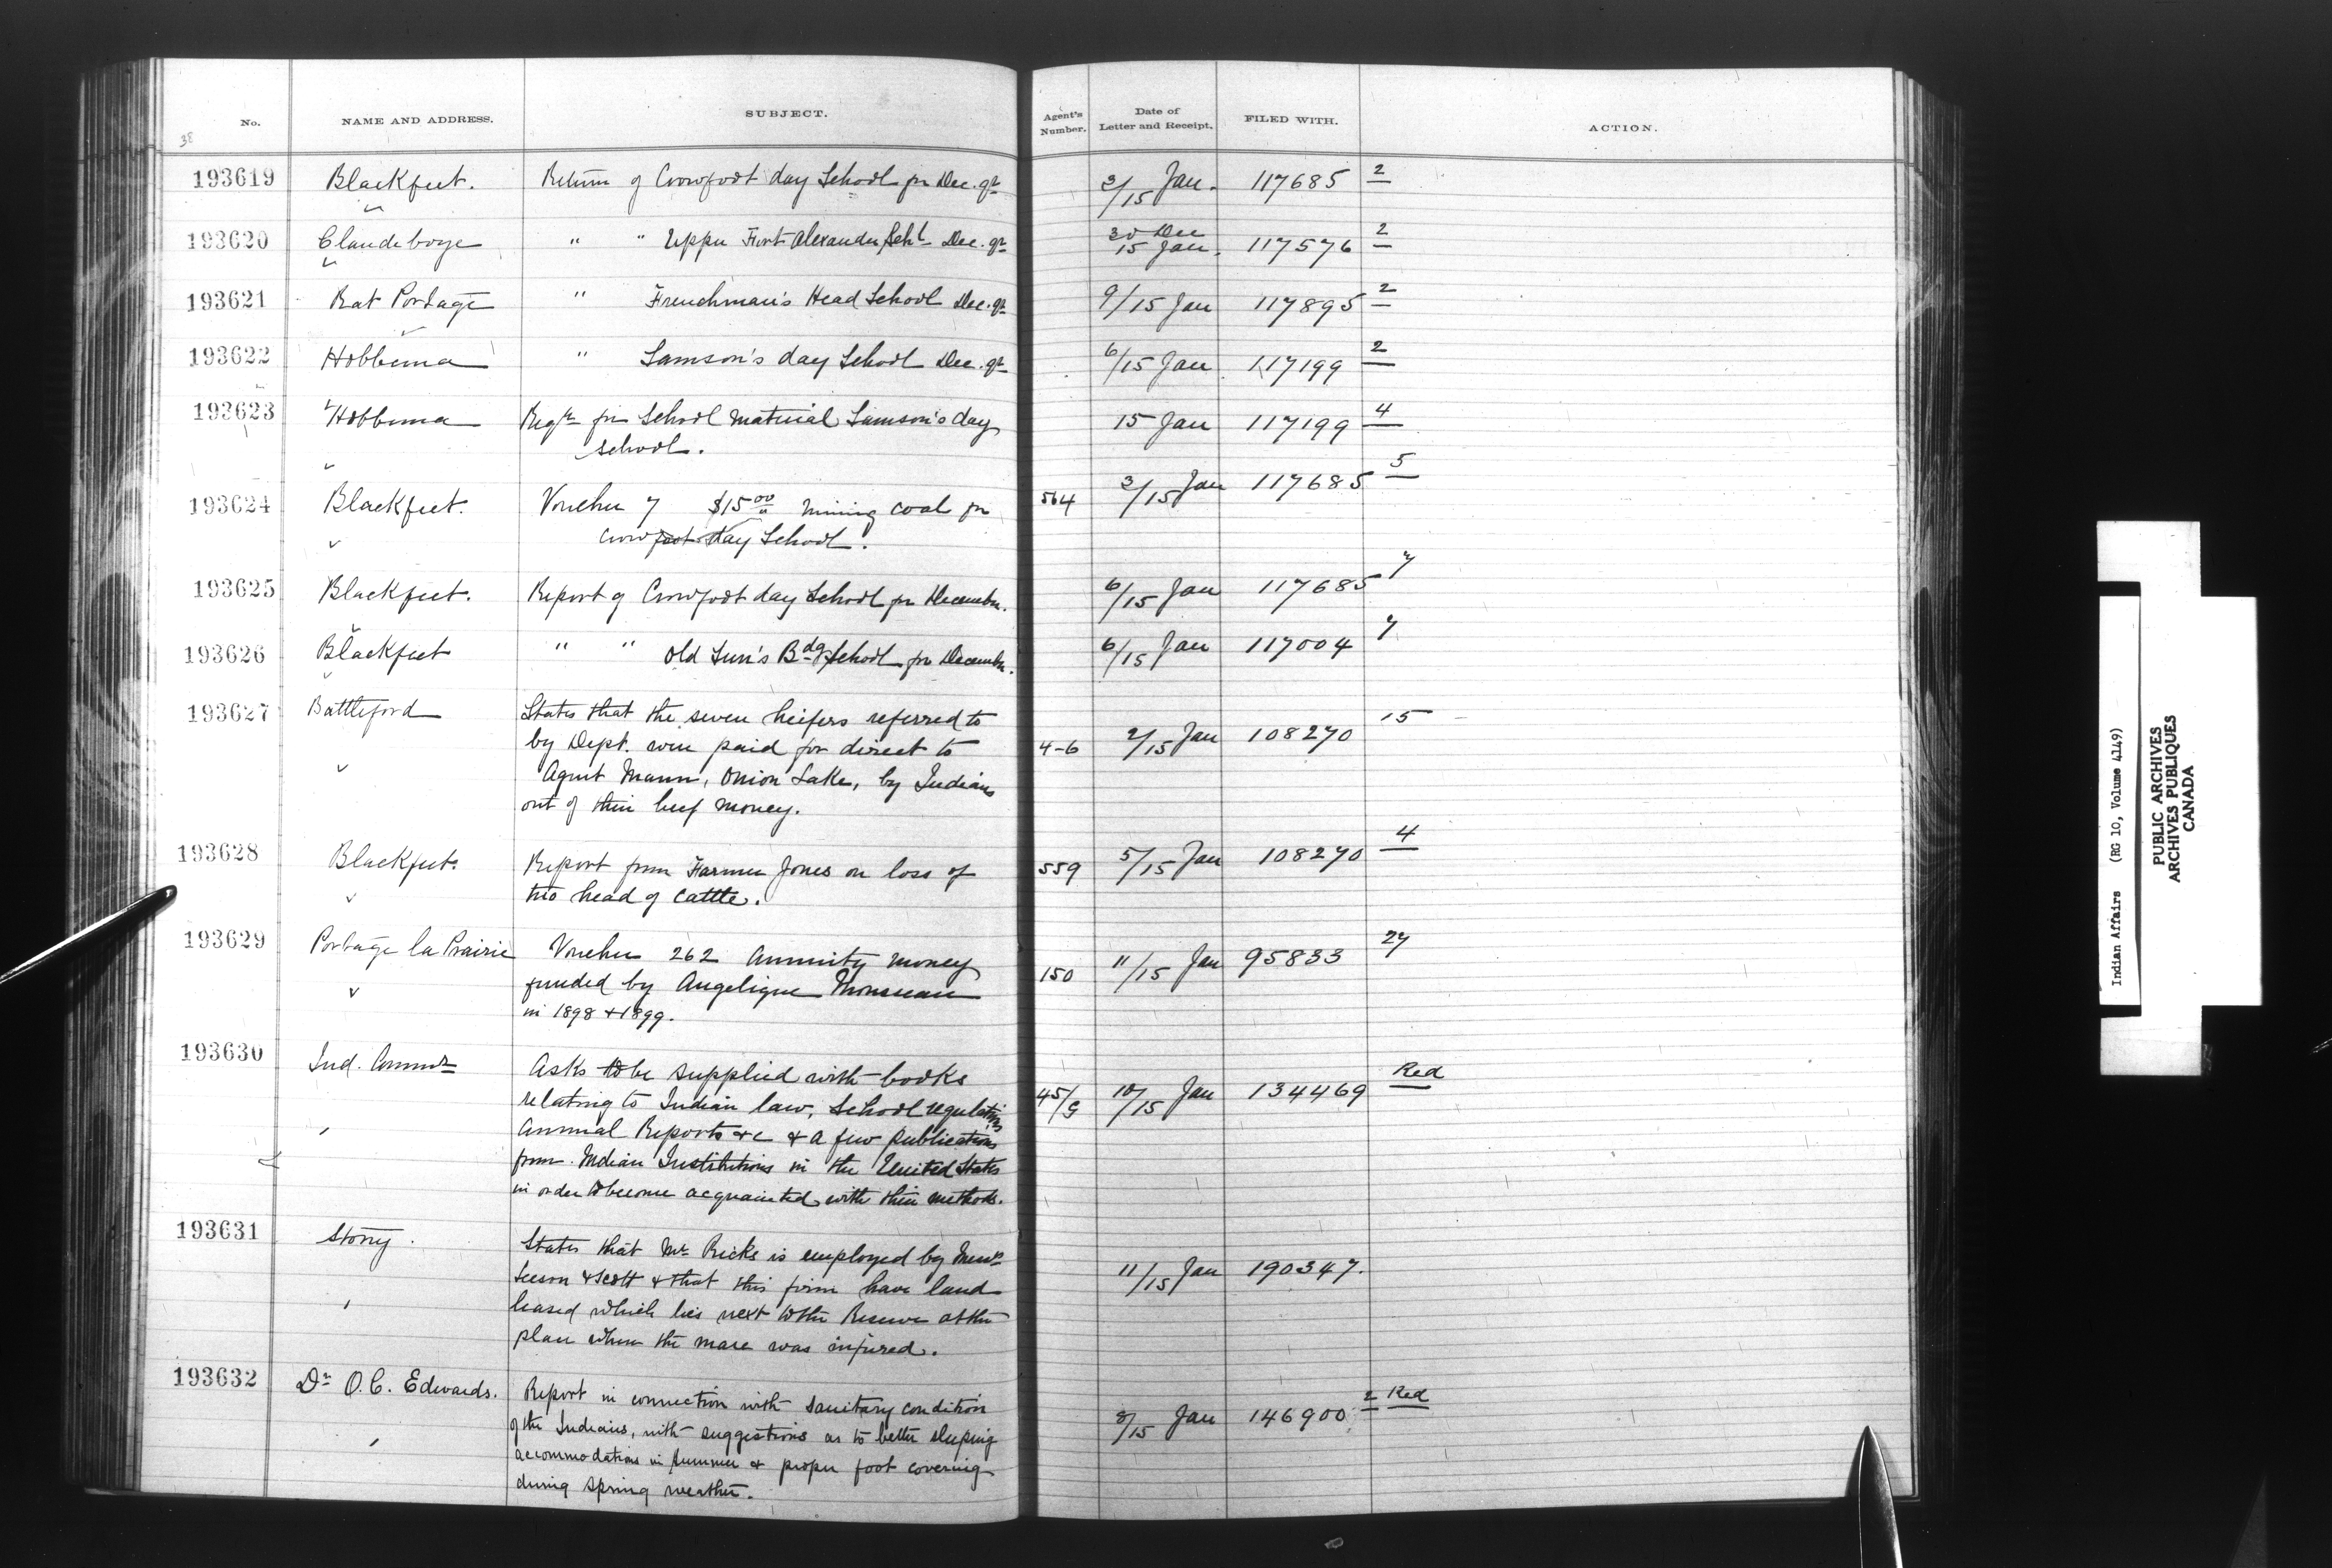 No. NAME AND ADDRESS. SUBJECT. Agent's Number. Date of Letter and Receipt. FILED WITH. ACTION.
38
193619 Blackfeet. Return of Crowfoot day School for Dec. qr 3/15 Jan. 117685 2
193620 Clandeboye " " Upper Fort Alexander Schl Dec. qr 30 Dec 15 Jan. 117576 2
193621 Rat Portage " Frenchman's Head School Dec. qr 9/15 Jan 117895 2
193622 Hobbema " Samson's day School Dec. qr 6/15 Jan 117199 2
193623 Hobbema Reqn for School material Samson's day 15 Jan 117199 4
school.
193624 Blackfeet. Voucher 7 $15.00 mining coal for 564 3/15 Jan 117685 5
Crowfoot day School.
193625 Blackfeet. Report of Crowfoot day School for December. 6/15 Jan 117685 7
193626 Blackfeet " " Old Sun's Bdg School for December. 6/15 Jan 117004 7
193627 Battleford States that the seven heifers referred to
by Dept. were paid for direct to 4-6 2/15 Jan 108270 15
Agent Mann, Onion Lake, by Indians
out of their beef money.
193628 Blackfeet. Report from Farmer Jones on loss of 559 5/15 Jan 108270 4
two head of cattle.
193629 Portage la Prairie Voucher 262 Annuity money 150 11/15 Jan 95833 27
funded by Angelique Monsseau
in 1898 & 1899.
193630 Ind. Commr Asks to be supplied with books
relating to Indian law, School regulations 45/G 10/15 Jan 134469 Red
Annual Reports &c & a few publications
from Indian Institutions in the United States
in order to become acquainted with their methods.
193631 Stony. States that Mr Ricks is employed by Messrs
Leeson & Scott & that this firm have land 11/15 Jan 190347.
leased which lies next to the Reserve at the
place where the mare was injured.
193632 Dr O. C. Edwards. Report in connection with sanitary condition
of the Indians, with suggestions as to better sleeping 8/15 Jan 146900 2 Red
accommodations in summer & proper foot covering
during spring weather.
Indian Affairs (RG 10, Volume 4149)
PUBLIC ARCHIVES
ARCHIVES PUBLIQUES
CANADA